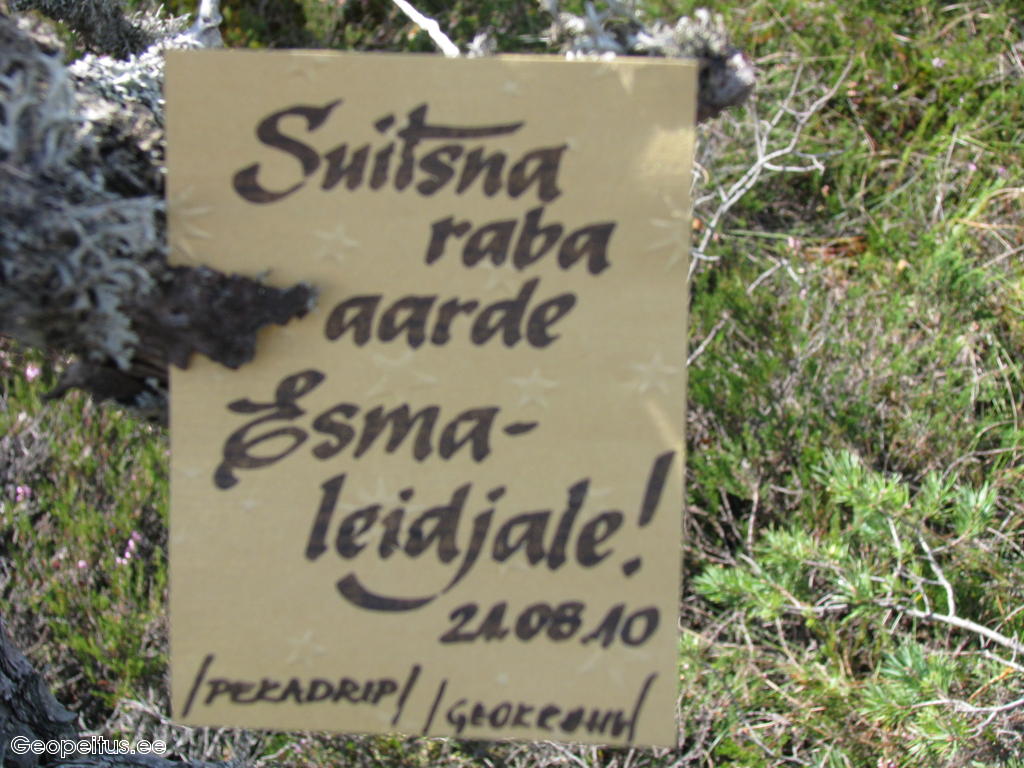 Suitsna
raba
aarde
Esma-
leidjale!
21.08.10
/PEKADRIP/
Geopeitus.ee